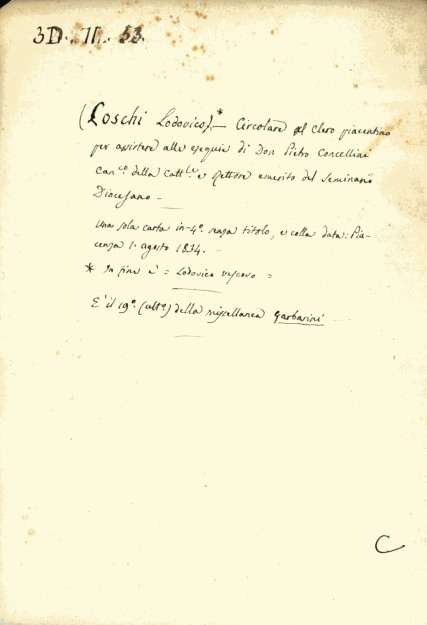 3D. II. 53.
(Loschi Lodovico)* — Circolare al clero piacentino
per assistere alle esequie di Don Pietro Concellini
Can.co della Catt.le e Rettore emerito del Seminario
Diocesano —
Una sola carta in-4.o senza titolo, e colla data: Pia-
cenza 1. agosto 1834. —
* In fine è = Lodovico vescovo =
E' il 19.o (ult.o) della miscellanea Garbarini —
C